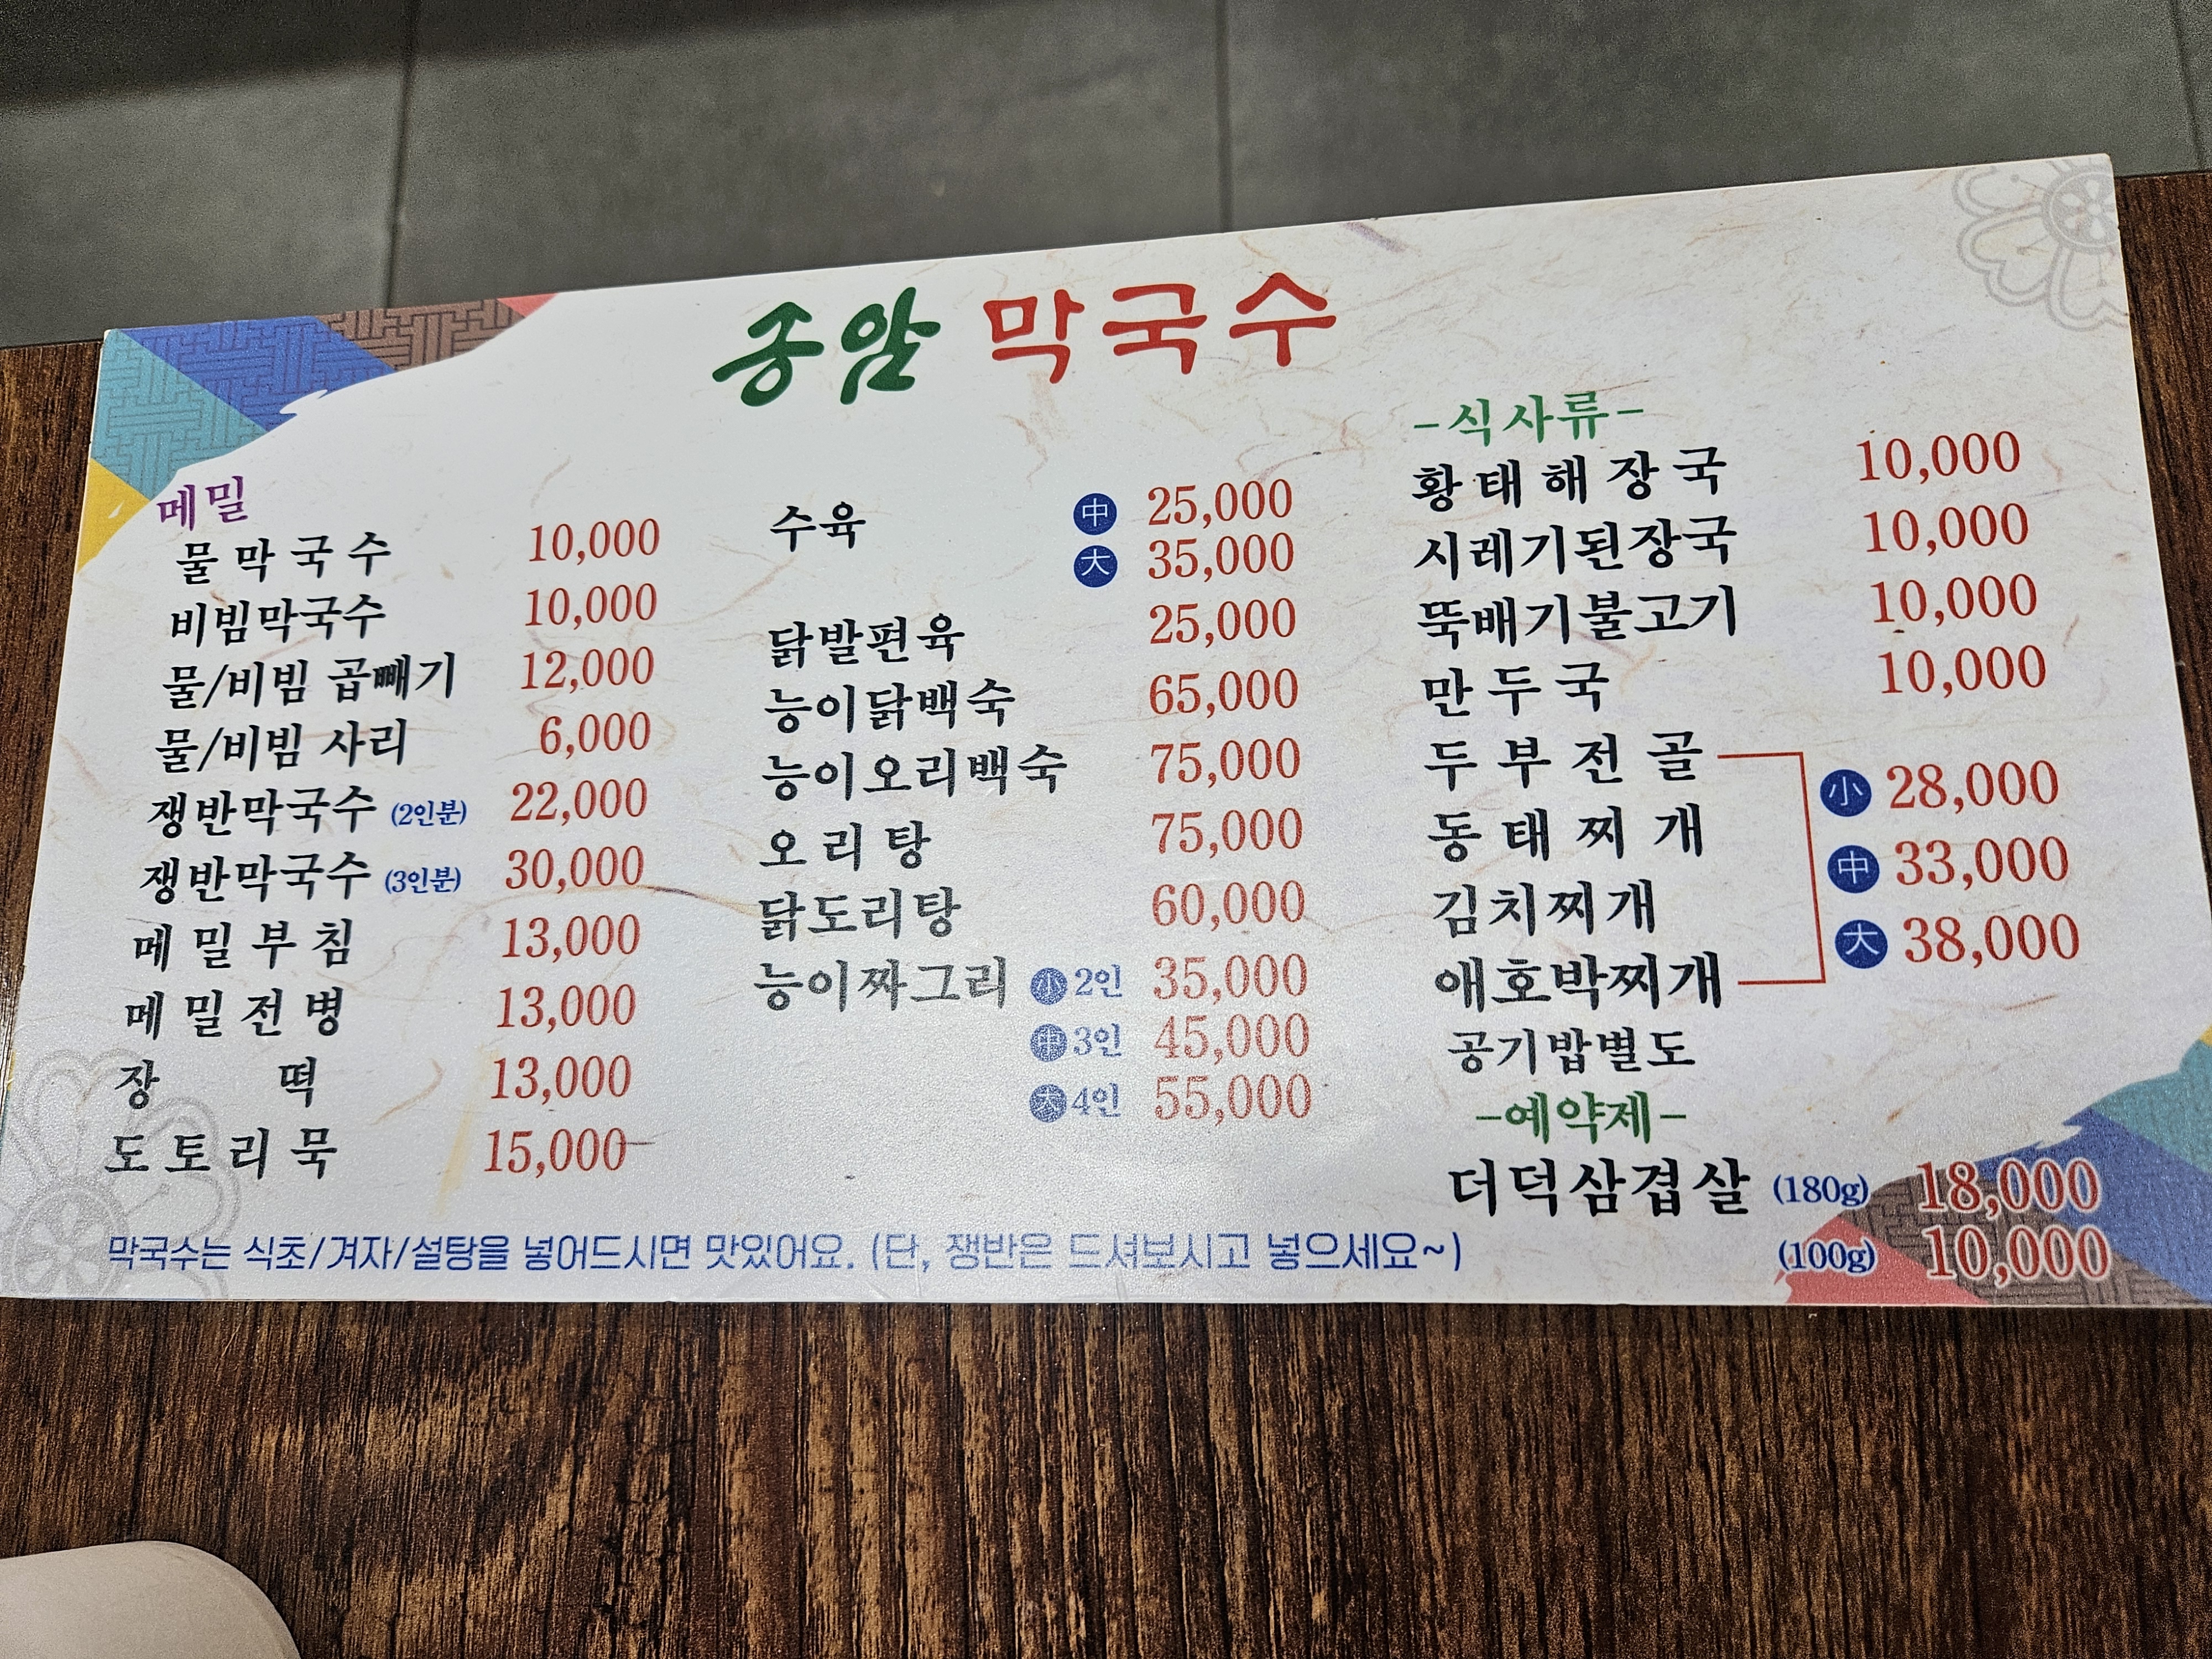 송암 막국수
메밀
물막국수 10,000
비빔막국수 10,000
물/비빔 곱빼기 12,000
물/비빔 사리 6,000
쟁반막국수 (2인분) 22,000
쟁반막국수 (3인분) 30,000
메밀부침 13,000
메밀전병 13,000
장떡 13,000
도토리묵 15,000
수육 中 25,000
大 35,000
닭발편육 25,000
능이닭백숙 65,000
능이오리백숙 75,000
오리탕 75,000
닭도리탕 60,000
능이짜그리 小 2인 35,000
中 3인 45,000
大 4인 55,000
-식사류-
황태해장국 10,000
시레기된장국 10,000
뚝배기불고기 10,000
만두국 10,000
두부전골
동태찌개
김치찌개
애호박찌개
小 28,000
中 33,000
大 38,000
공기밥별도
-예약제-
더덕삼겹살 (180g) 18,000
(100g) 10,000
막국수는 식초/겨자/설탕을 넣어드시면 맛있어요. (단, 쟁반은 드셔보시고 넣으세요~)